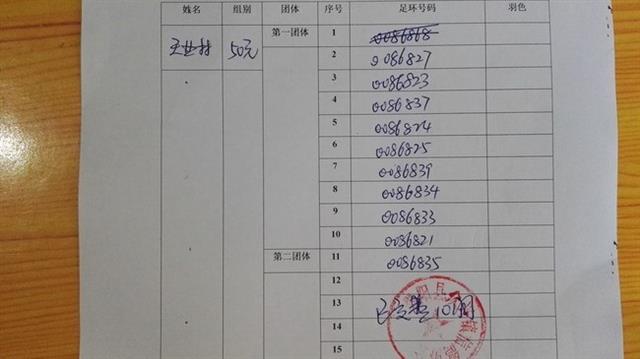 姓名 组别 团体 序号 足环号码 羽色
王世村 50元 第一团体 1 0086868
2 0086827
3 0086823
4 0086837
5 0086824
6 0086825
7 0086839
8 0086834
9 0086833
10 0086821
第二团体 11 0086835
12
13
14
15